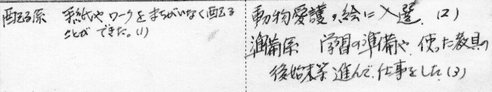 配る係 手紙や ワークを まちがいなく配る
ことが できた。(1)
動物愛護の絵に入選 (2)
準備係 学習の準備や 使った教具の
後始末等 進んで仕事をした (3)